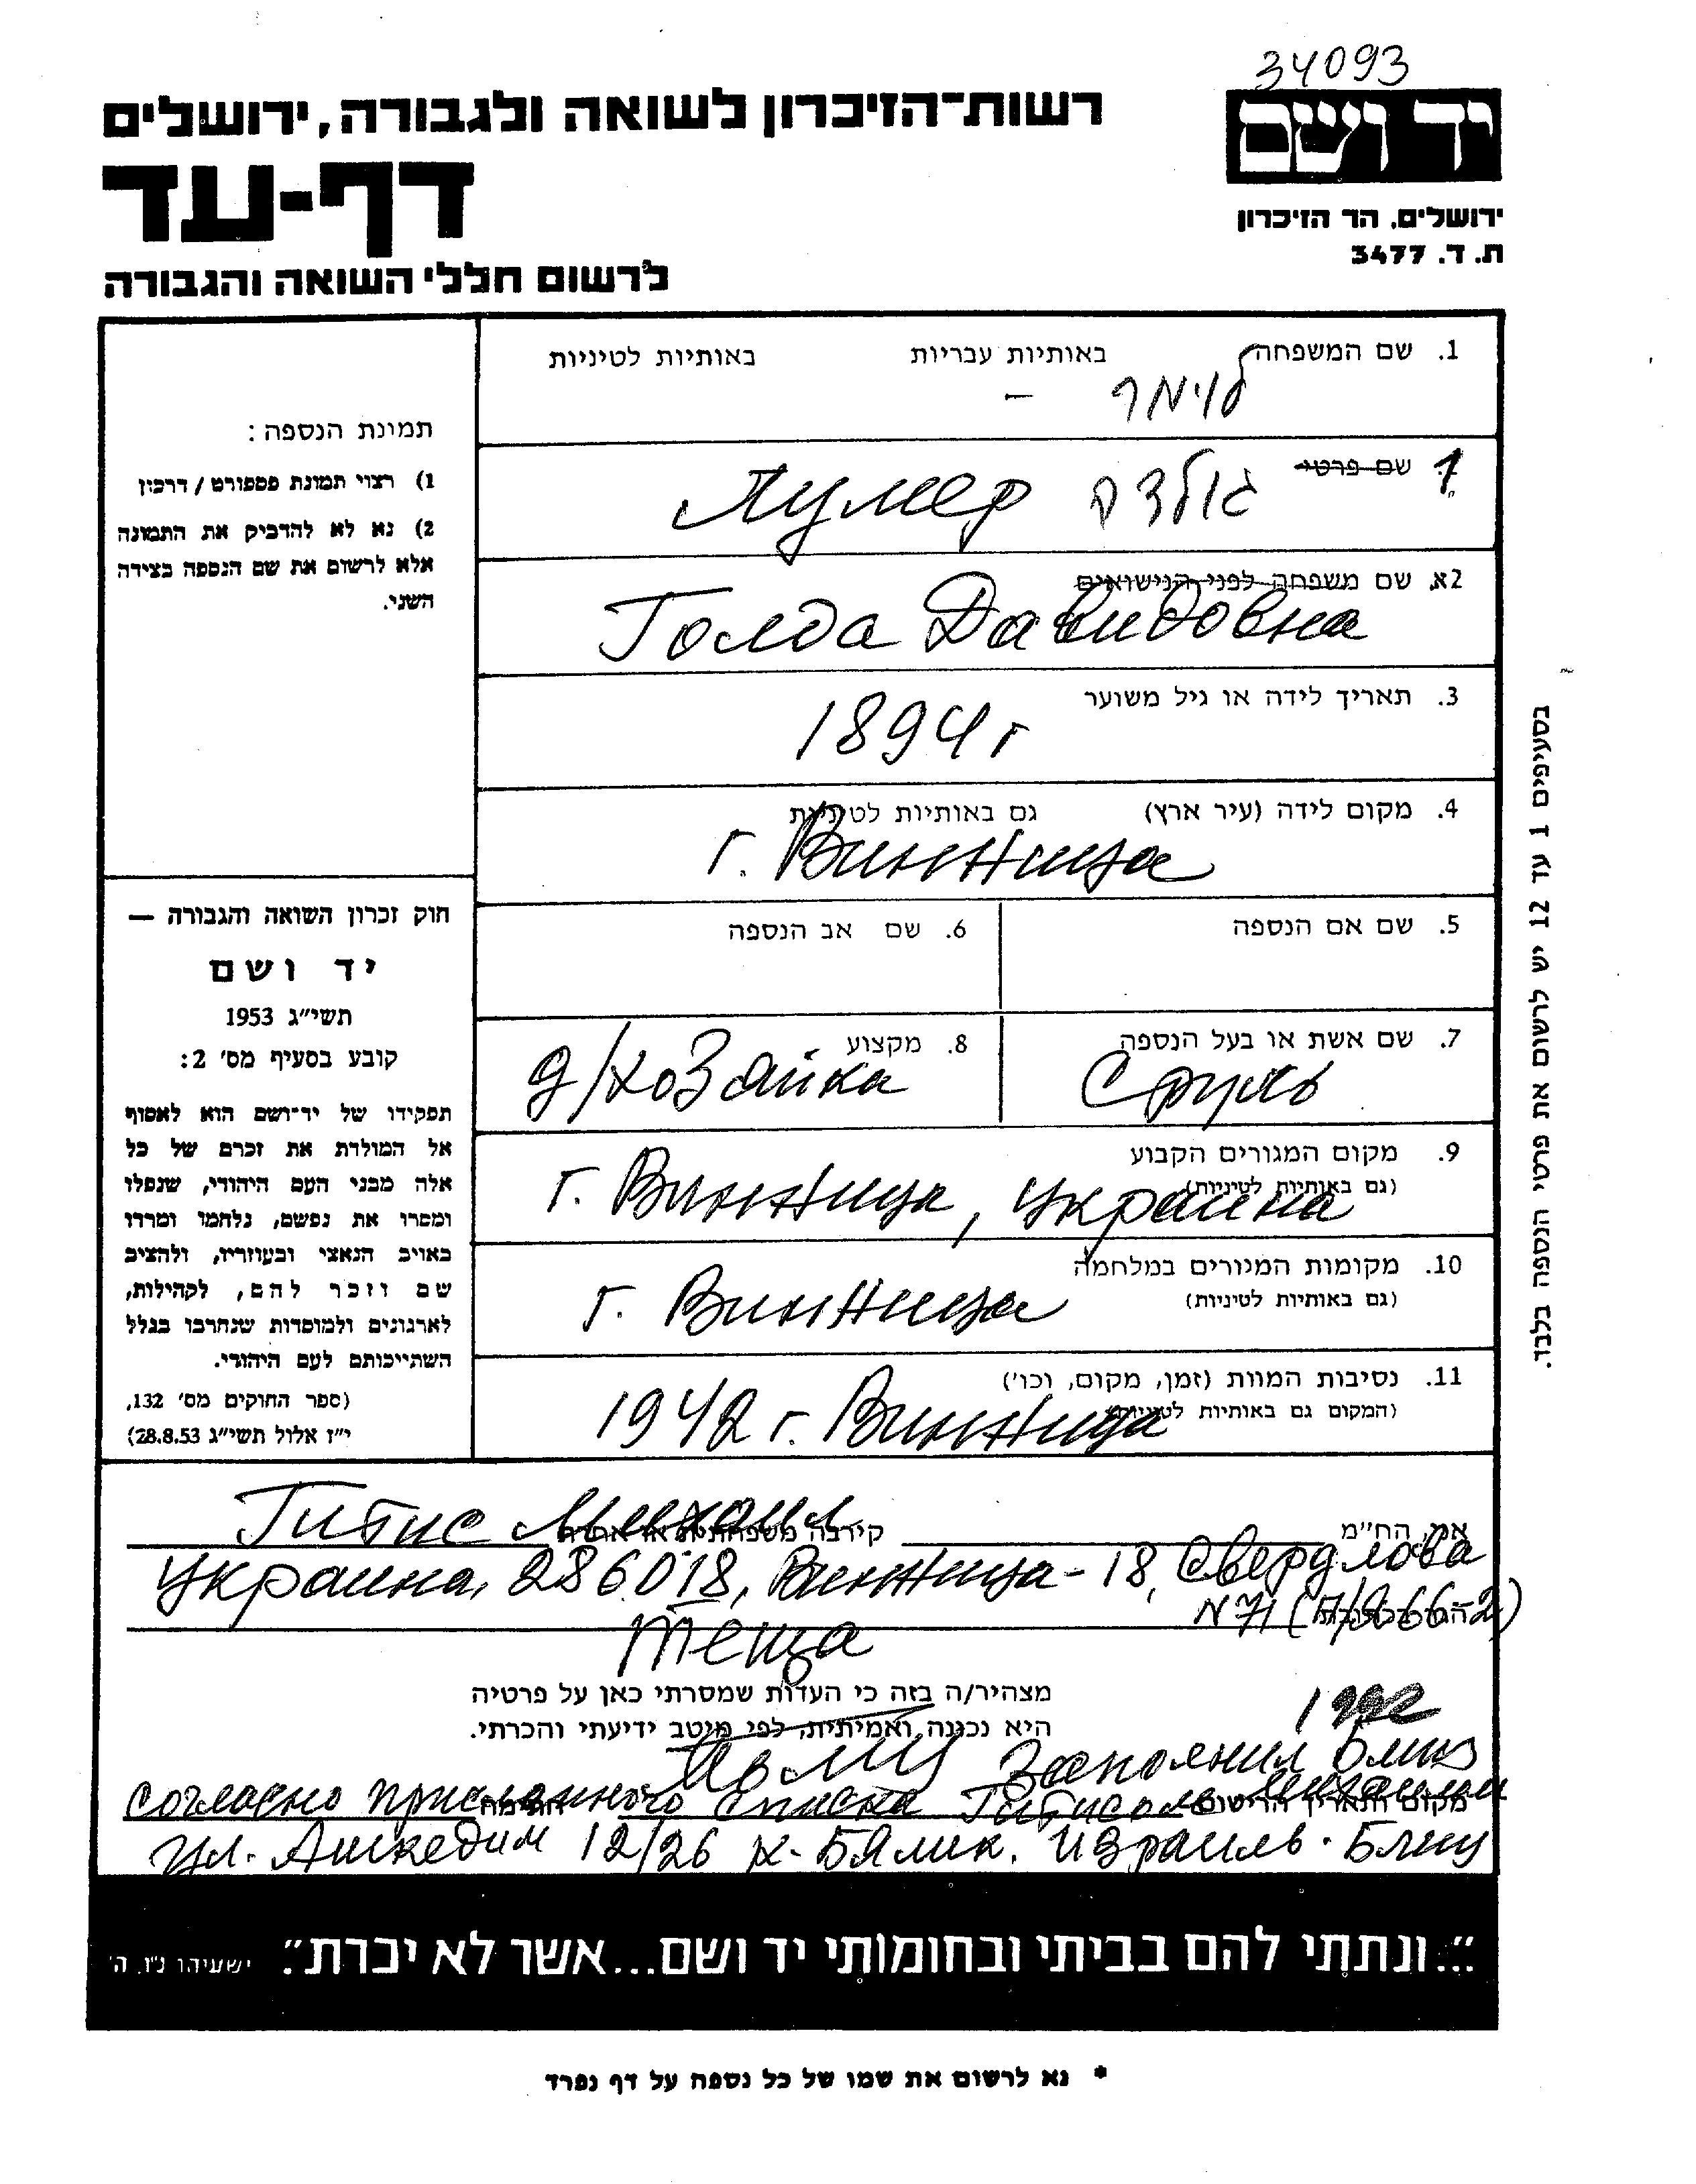 34093
יד ושם
רשות־הזיכרון לשואה ולגבורה, ירושלים
דף-עד
לרשום חללי השואה והגבורה
ירושלים, הר הזיכרון
ת. ד. 3477
1. שם המשפחה באותיות עבריות באותיות לטיניות
לוימר –
1 שם פרטי
גולדה Лумер
2א. שם משפחה לפני הנישואים
Голда Давидовна
3. תאריך לידה או גיל משוער
1894 г
4. מקום לידה (עיר ארץ) גם באותיות לטיניות
г. Винница
5. שם אם הנספה
6. שם אב הנספה
7. שם אשת או בעל הנספה
Сруль
8. מקצוע
д/хозайка
9. מקום המגורים הקבוע
(גם באותיות לטיניות)
г. Винница, Украина
10. מקומות המגורים במלחמה
(גם באותיות לטיניות)
г. Винница
11. נסיבות המוות (זמן, מקום, וכו')
(המקום גם באותיות לטיניות)
1942 г. Винница
תמונת הנספה:
1) רצוי תמונת פספורט / דרכון
2) נא לא להדביק את התמונה
אלא לרשום את שם הנספה בצידה
השני.
חוק זכרון השואה והגבורה —
יד ושם
תשי"ג 1953
קובע בסעיף מס' 2:
תפקידו של יד־ושם הוא לאסוף
אל המולדת את זכרם של כל
אלה מבני העם היהודי, שנפלו
ומסרו את נפשם, נלחמו ומרדו
באויב הנאצי ובעוזריו, ולהציב
שם וזכר להם, לקהילות,
לארגונים ולמוסדות שנחרבו בגלל
השתייכותם לעם היהודי.
(ספר החוקים מס' 132,
י"ז אלול תשי"ג 28.8.53)
בסעיפים 1 עד 12 יש לרשום את פרטי הנספה בלבד.
אני, הח"מ
קירבה משפחתית או אחרת
Гитис Михаил
Украина, 286018, Винница - 18, Свердлова
N 71 (
Теща
מצהיר/ה בזה כי העדות שמסרתי כאן על פרטיה
היא נכונה ואמיתית, לפי מיטב ידיעתי והכרתי.
1992
Заполнил Блиц
согласно присланного списка Гитисом Михаилом
מקום ותאריך הרישום
חתימה
ул. Ашкедим 12/26 К. Бялик. Израиль. Блиц
"...ונתתי להם בביתי ובחומותי יד ושם...אשר לא יכרת". ישעיהו נ"ו, ה'
* נא לרשום את שמו של כל נספה על דף נפרד